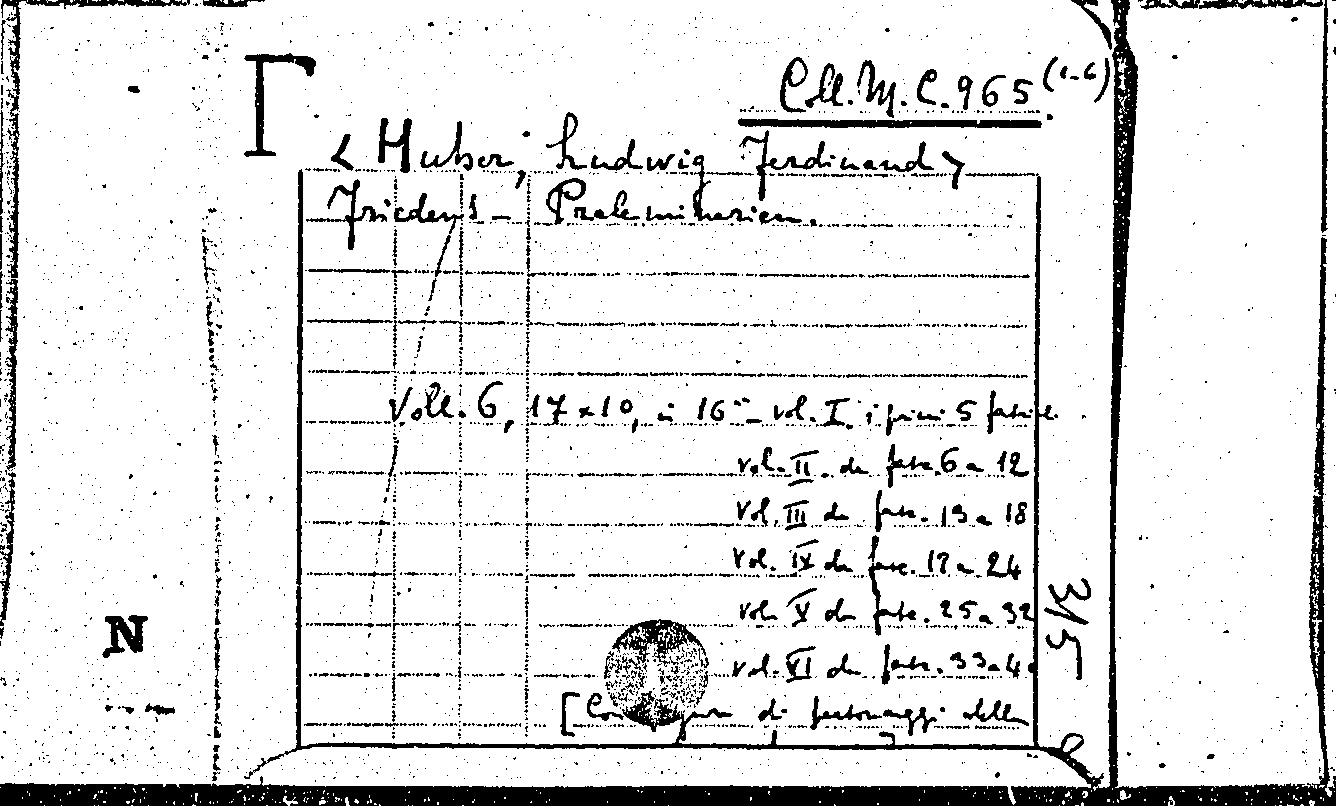 Γ
Coll. M. C. 965 (1-6)
< Huber, Ludwig Ferdinand >
Friedens - Praeliminarien.
Voll. 6, 17 x 10, in 16° - vol. I. i primi 5 fascic.
vol. II. da fasc. 6 a 12
vol. III da fasc. 13 a 18
vol. IV da fasc. 19 a 24
vol. V da fasc. 25 a 32
vol. VI da fasc. 33 a 40
[Con di personaggi della
N
315